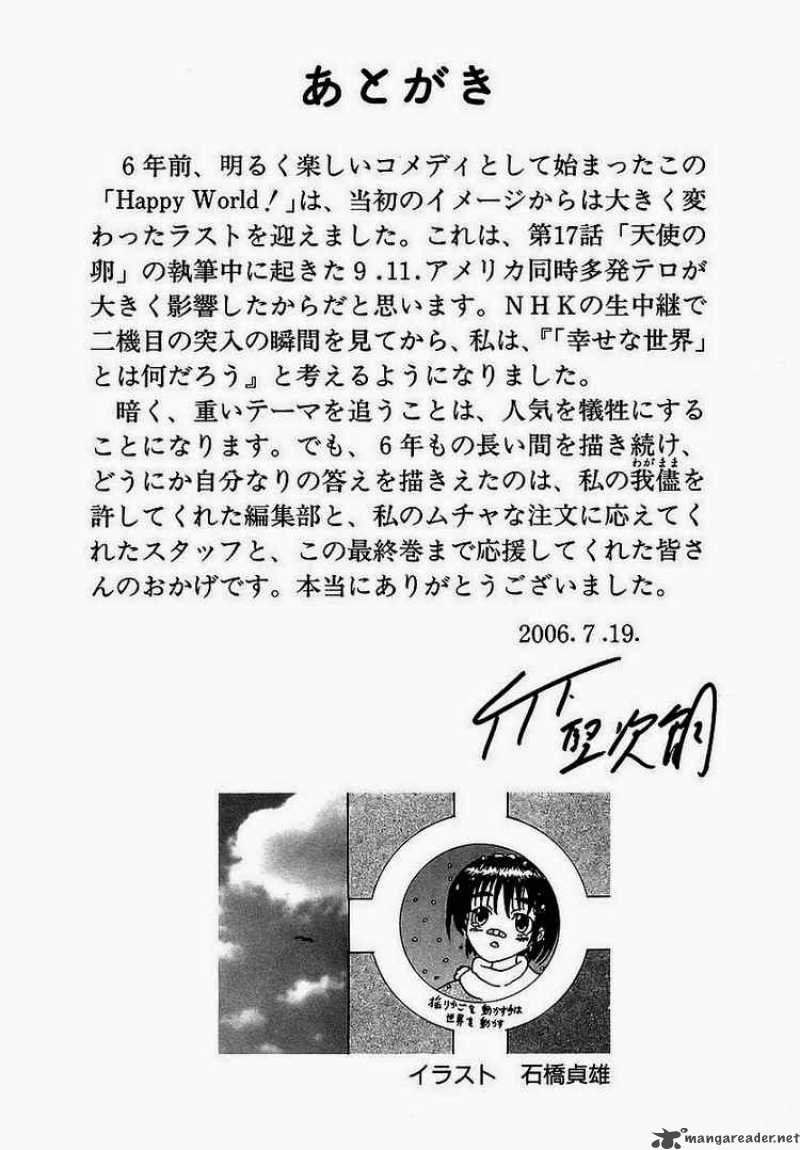 あとがき
6年前、明るく楽しいコメディとして始まったこの
「Happy World!」は、当初のイメージからは大きく変
わったラストを迎えました。これは、第17話「天使の
卵」の執筆中に起きた9.11.アメリカ同時多発テロが
大きく影響したからだと思います。NHKの生中継で
二機目の突入の瞬間を見てから、私は、『「幸せな世界」
とは何だろう』と考えるようになりました。
暗く、重いテーマを追うことは、人気を犠牲にする
ことになります。でも、6年もの長い間を描き続け、
わがまま
どうにか自分なりの答えを描きえたのは、私の我儘を
許してくれた編集部と、私のムチャな注文に応えてく
れたスタッフと、この最終巻まで応援してくれた皆さ
んのおかげです。本当にありがとうございました。
2006.7.19.
竹下堅次朗
揺りかごを動かす手は
世界を動かす
イラスト 石橋貞雄
mangareader.net